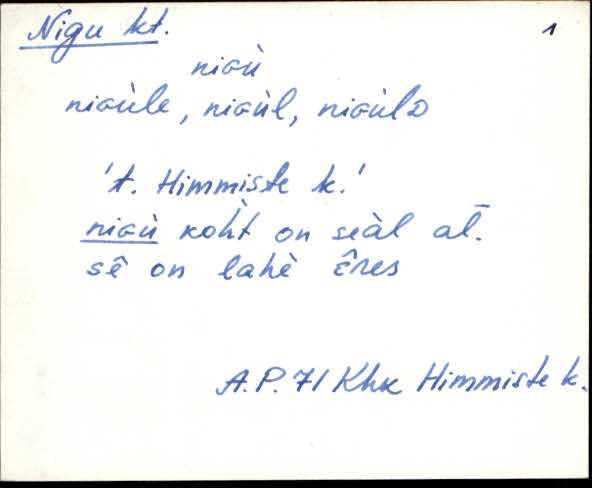 Nigu kt. 1
niɢù
niɢùle, niɢùl, niɢùlᴅ
't. Himmiste k.'
niɢù koh̀t on seàl al̄.
sê on lahè êres
A.P. 71 Khk Himmiste k.